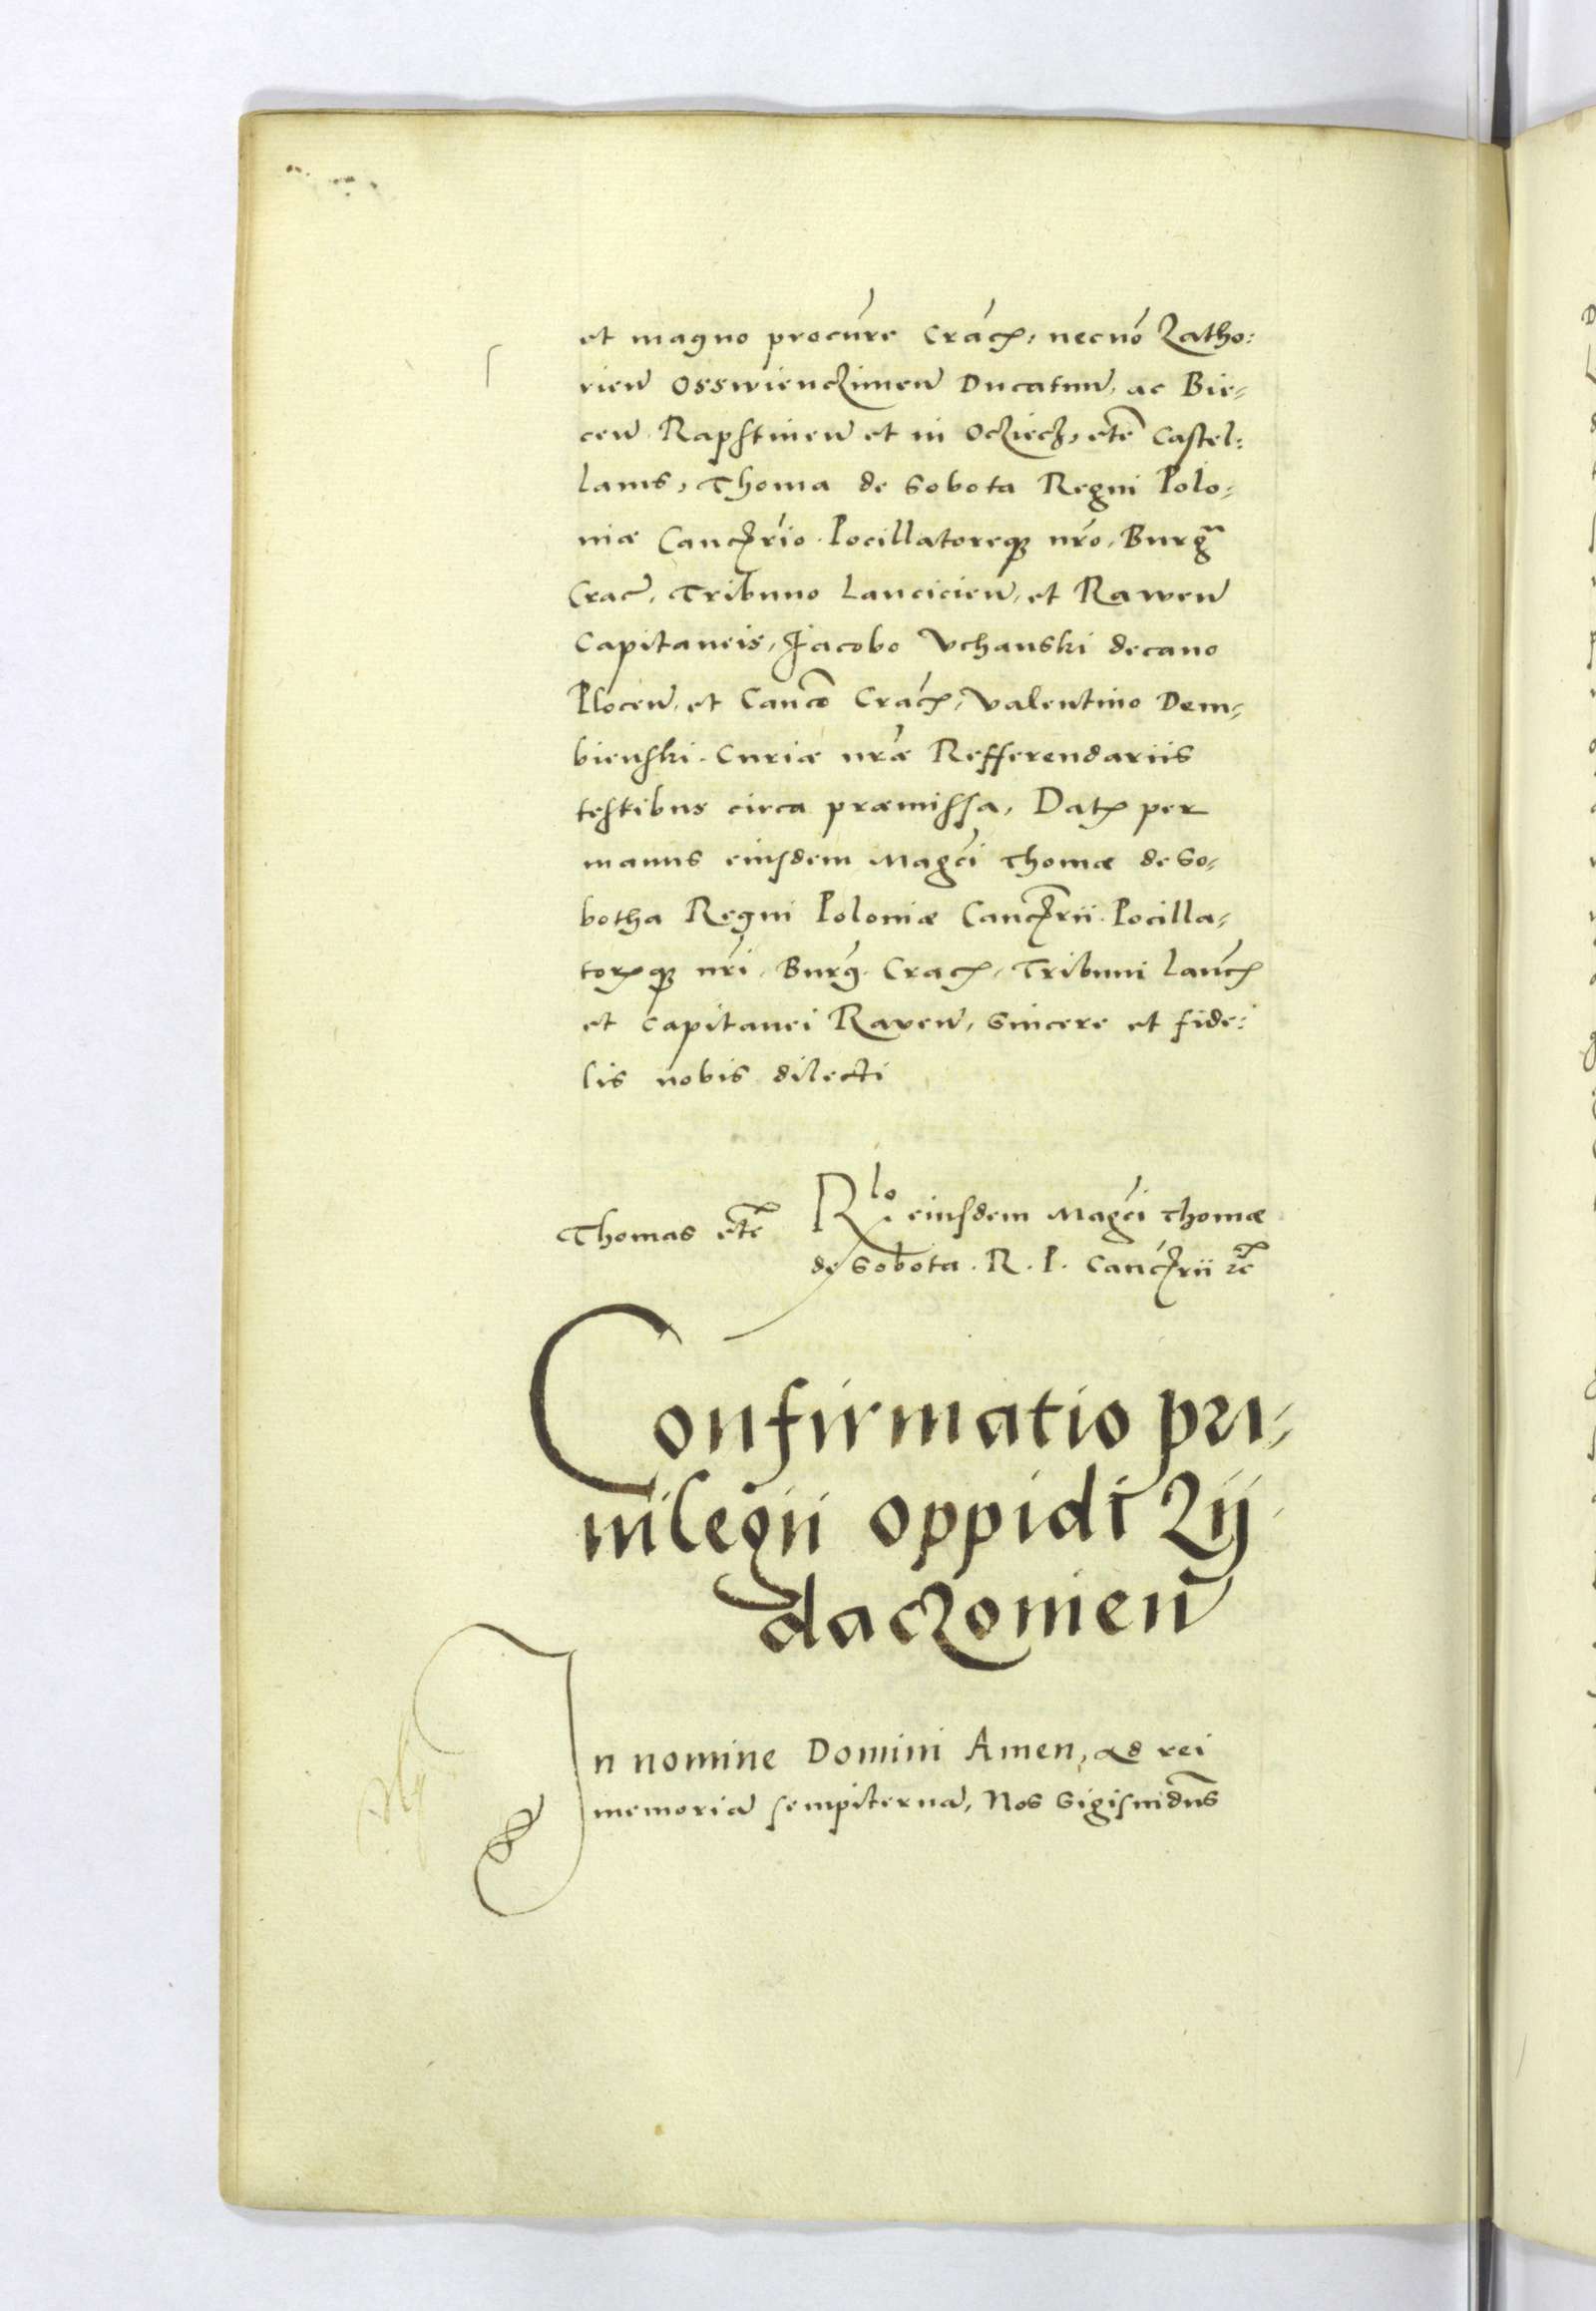 et magno procúre Crácꝭ, necnó Zatho:
rien̄ Osswienczimen̄ Ducatuu̅, ac Bie-
cen̄ Rapstinen̄ et in Ocziecz, etc̃ Castel:
lanis, Thoma de Sobota Regni Polo-
niæ Cancꝭrio. Pocillatoreqꝫ nŕo, Burgᵃ
Crac̃, Tribuno Lancicien̄, et Rawen̄
Capitaneis, Jacobo Vchanski decano
Plocen̄, et Canco̅ Crácꝭ, Valentino Dem-
bienski. Curiæ nr̃æ Refferendariis
testibus circa præmissa, Datꝭ per
manus eiusdem Magc̃i Thomæ de So-
botha Regni Poloniæ Cancꝭrii. Pocilla-
torꝭqꝫ nŕi, Burǵ. Cracꝭ, Tribuni Lan̄cꝭ
et Capitanei Raven̄, Sincere et fide:
lis nobis dilecti
Thomas etc̃
Rˡᵒ eiusdem Magc̃i Thomæ
de Sobota. R. P. Cancꝭrii ꝛc̃
Confirmatio pri-
uilegii oppidi Zij
daczouien̄
In nomine Domini Amen, ad rei
memoria̅ sempiterna̅, Nos Sigismu̅dus